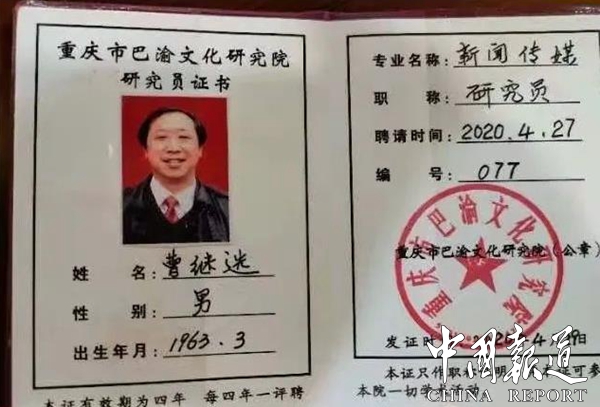 重庆市巴渝文化研究院
研究员证书
姓 名：曹继选
性 别：男
出生年月：1963.3
本证有效期为四年 每四年一评聘
专业名称：新闻传媒
职 称：研究员
聘请时间：2020.4.27
编 号：077
重庆市巴渝文化研究院
重庆市巴渝文化研究院（公章）
发证时
日
本证只作职
明
可参
本院一切学术活动
中國報道
CHINA REPORT